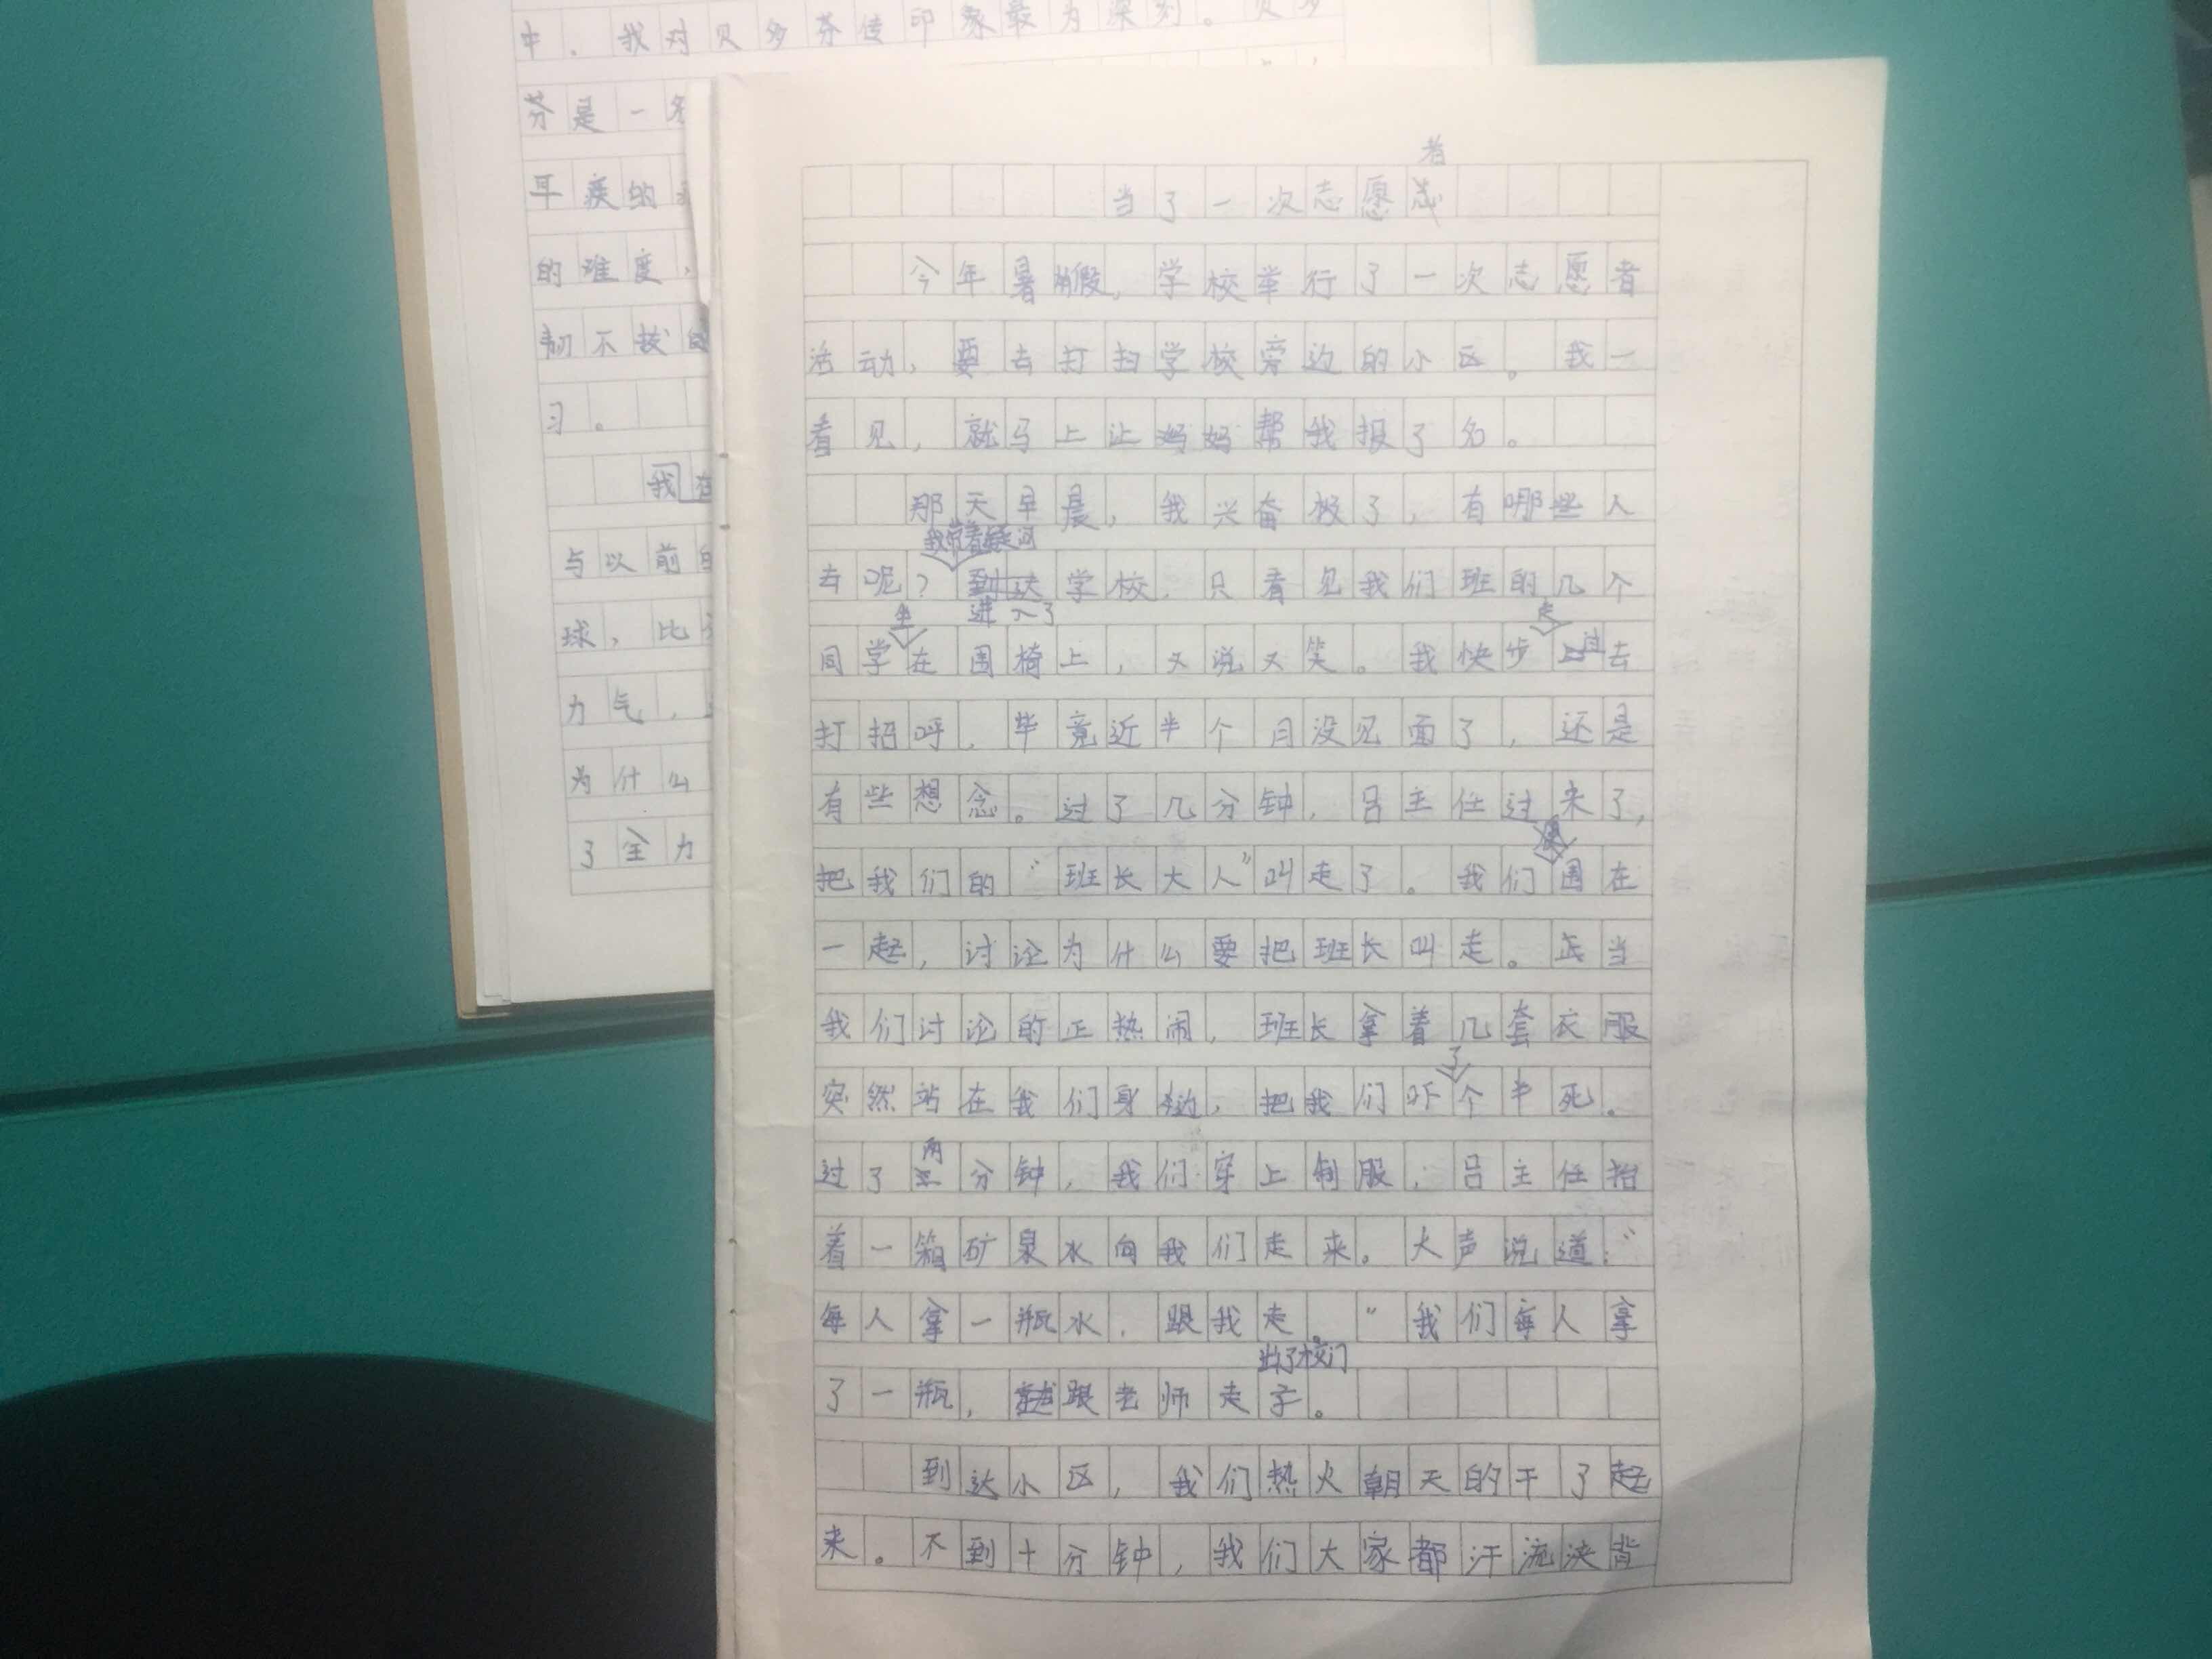 中，我对贝多芬传印象最为深刻。贝多
芬是一名
耳疾的
的难度，
韧不拔的
习。
我在
与以前的
球，比
力气，
为什么
了全力
者
当了一次志愿志
今年暑假，学校举行了一次志愿者
活动，要去打扫学校旁边的小区。我一
看见，就马上让妈妈帮我报了名。
那天早晨，我兴奋极了，有哪些人
我带着疑问
去呢？到达学校，只看见我们班的几个
坐 进入了 走
同学在围椅上，又说又笑。我快步过去
打招呼，毕竟近半个月没见面了，还是
有些想念。过了几分钟，吕主任过来了，
把我们的“班长大人”叫走了。我们围在
一起，讨论为什么要把班长叫走。正当
我们讨论的正热闹，班长拿着几套衣服
了
突然站在我们身边，把我们吓个半死。
两
过了三分钟，我们穿上制服，吕主任抬
着一箱矿泉水向我们走来。大声说道：“
每人拿一瓶水，跟我走。”我们每人拿
出了校门
了一瓶，就跟老师走了。
到达小区，我们热火朝天的干了起
来。不到十分钟，我们大家都汗流浃背